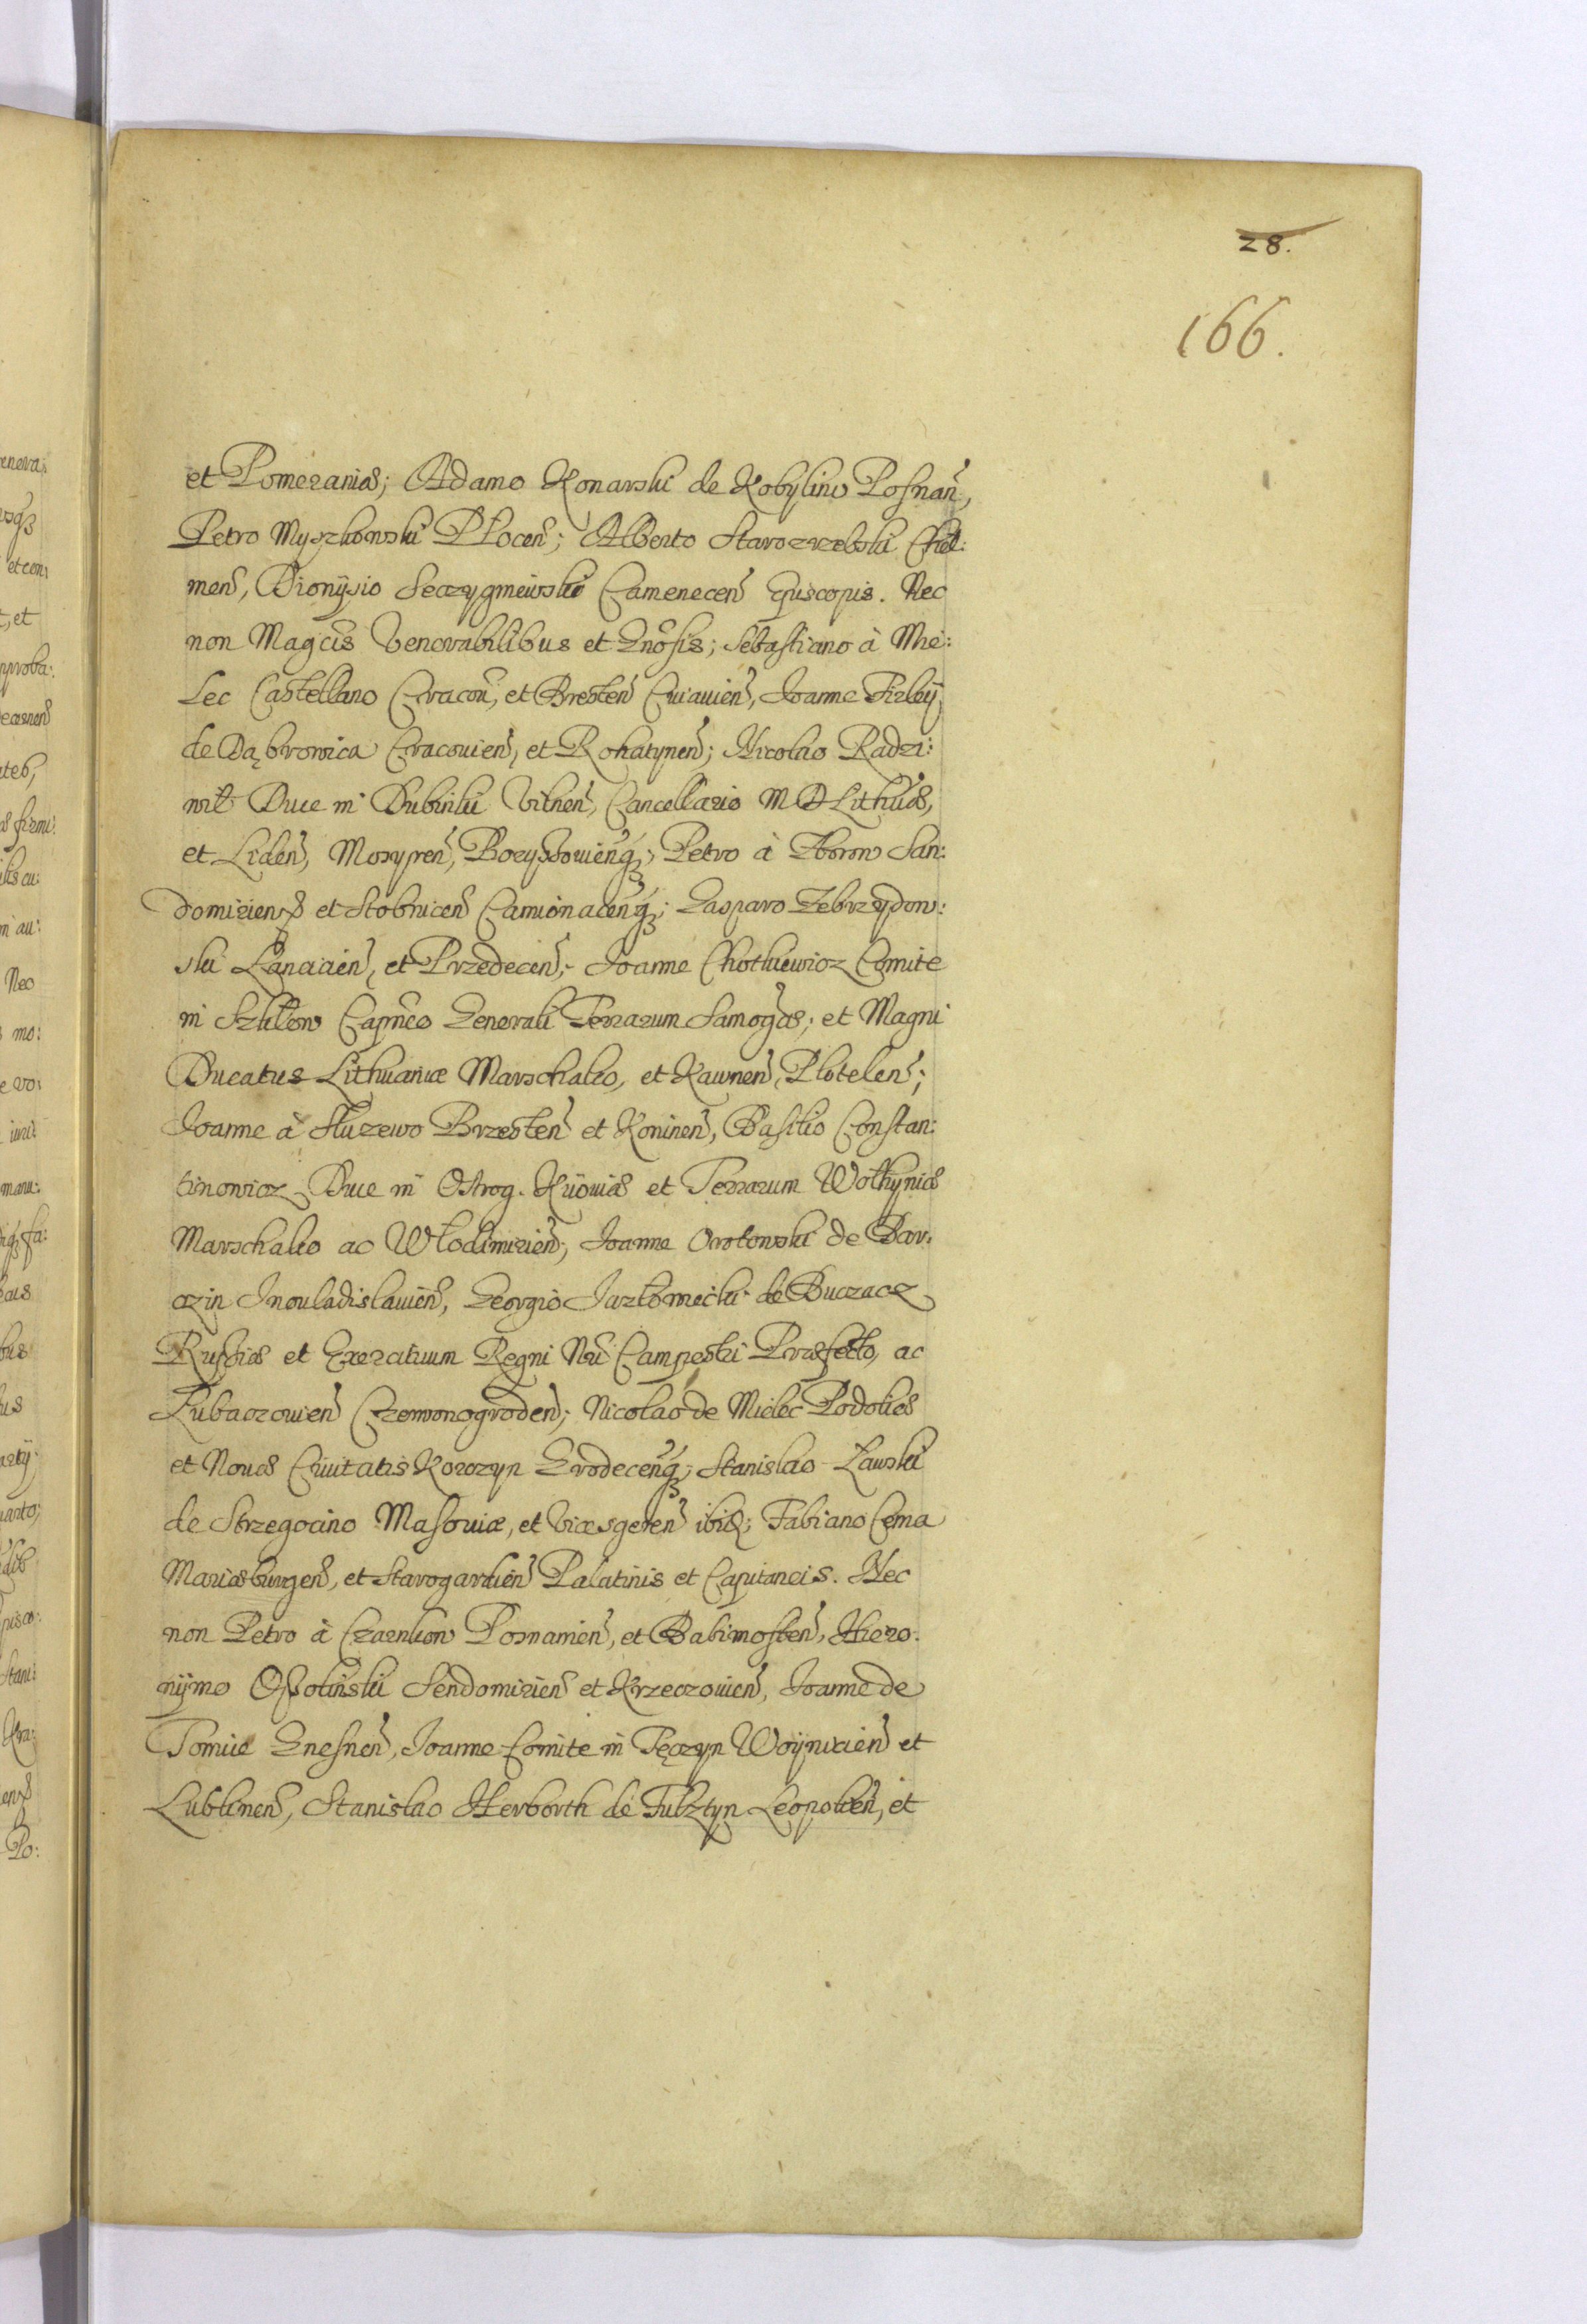 28.
166.
et Pomeraniæ; Adamo Konarski de Kobylino Posnan̄,
Petro Myszkowski Płocen̄; Alberto Starozrzebski Chel:
men̄, Dionÿsio Seczygmeiwski Camenecen̄ Episcopis. Nec
non Magcis Venerabilibus et Gnosis; Sebastiano à Mie:
lec Castellano Cracou, et Bresten̄ Cuiauien̄, Joanne Firleÿ
de Dąbrowica Cracouien̄, et Rohatynen̄; Nicolao Radzi:
wił Duce in Dubinki Vilnen̄, Cancellario M D Lithuæ,
et Liden̄, Mozyren̄, Boryssouien̄q;, Petro à Zborow San:
domiriens et Stobnicen̄ Camionacen̄q;; Gasparo Zebrzydow:
ski Lanciciēn, et Przedecen̄; Joanne Chotkiewicz Comite
in Szkłow Capn̄eo Generali Terrarum Samogæ; et Magni
Ducatus Lithuaniæ Marschalco, et Kawnen̄, Plotelen̄;
Joanne à Służewo Brzesten̄ et Koninen̄, Basilio Constan:
tinowicz Duce in Ostrog. Kÿouiæ et Terrarum Wolhyniæ
Marschalco ac Włodimirien̄; Joanne Orłowski de Bar:
czin Jnouladislauien̄, Georgio Jazłowiecki de Buczacz
Russiæ et Exercituum Regni Nri Campestri Præfecto, ac
Lubaczouien̄ Czerwonogroden̄; Nicolao de Mielec Podoliæ
et Nouæ Ciuitatis Korczyn Grodecen̄q;; Stanislao Ławski
de Strzegocino Masouiæ, et Vicesgeren̄ ibid; Fabiano Cema
Mariæburgen̄, et Starogardien̄ Palatinis et Capitaneis. Nec
non Petro à Czarnkow Posnanien̄, et Babimosten̄, Hiero:
nÿmo Ossoliński Sendomirien̄ et Krzeczowien̄, Joanne de
Tomice Gnesnen̄, Joanne Comite in Tęczyn Woÿnicien̄ et
Lublinen̄, Stanislao Herborth de Fulsztyn Leopolien̄, et